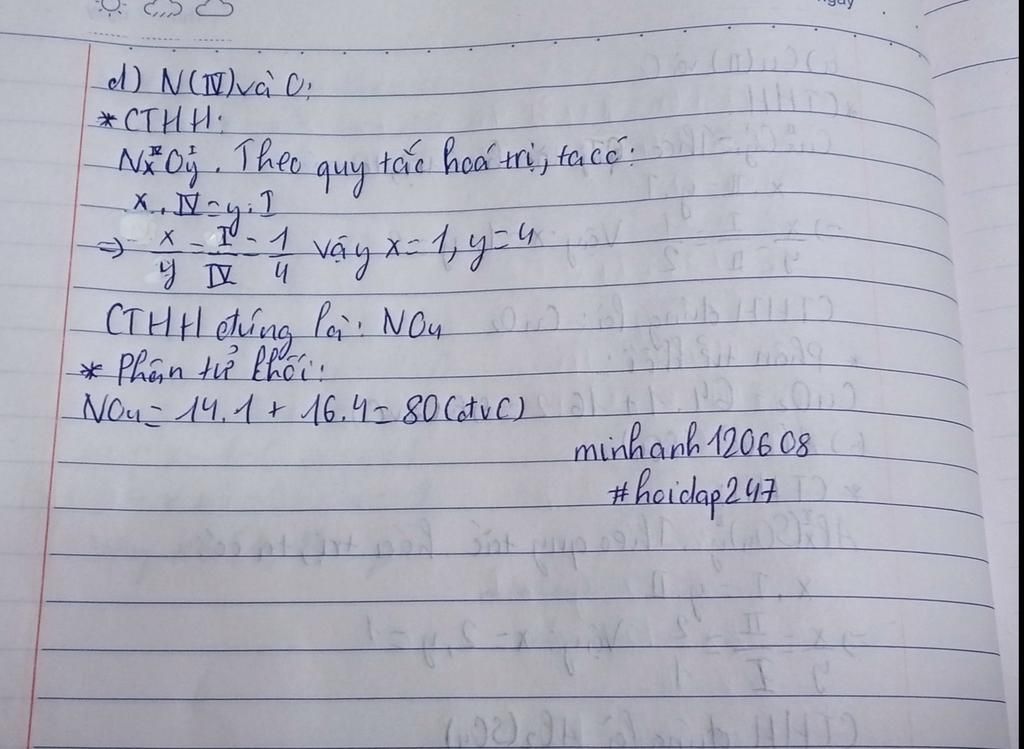 gày
d) N(IV) và O:
*CTHH:
NxᴵⱽOyᴵ. Theo quy tắc hoá trị, ta có:
x . IV = y . I
=> x/y = I/IV = 1/4 vậy x = 1, y = 4
CTHH đúng là: NO4
* Phân tử khối:
NO4 = 14.1 + 16.4 = 80 (đvC)
minhanh120608
#hoidap247